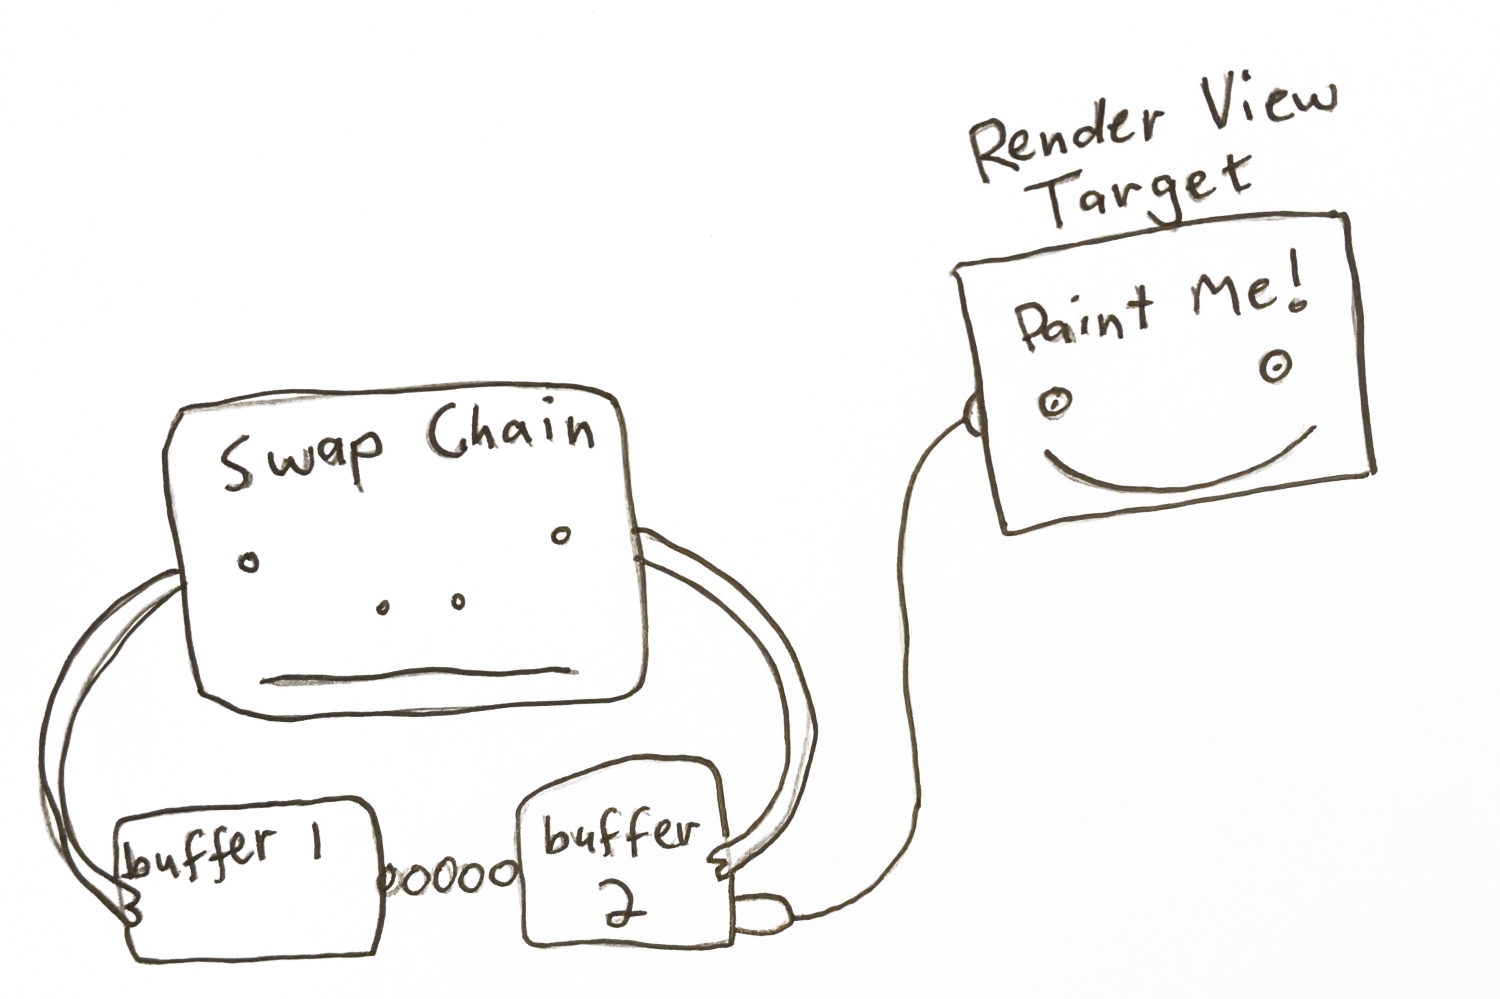 Render View
Target
Paint Me!
Swap Chain
buffer 1
buffer
2